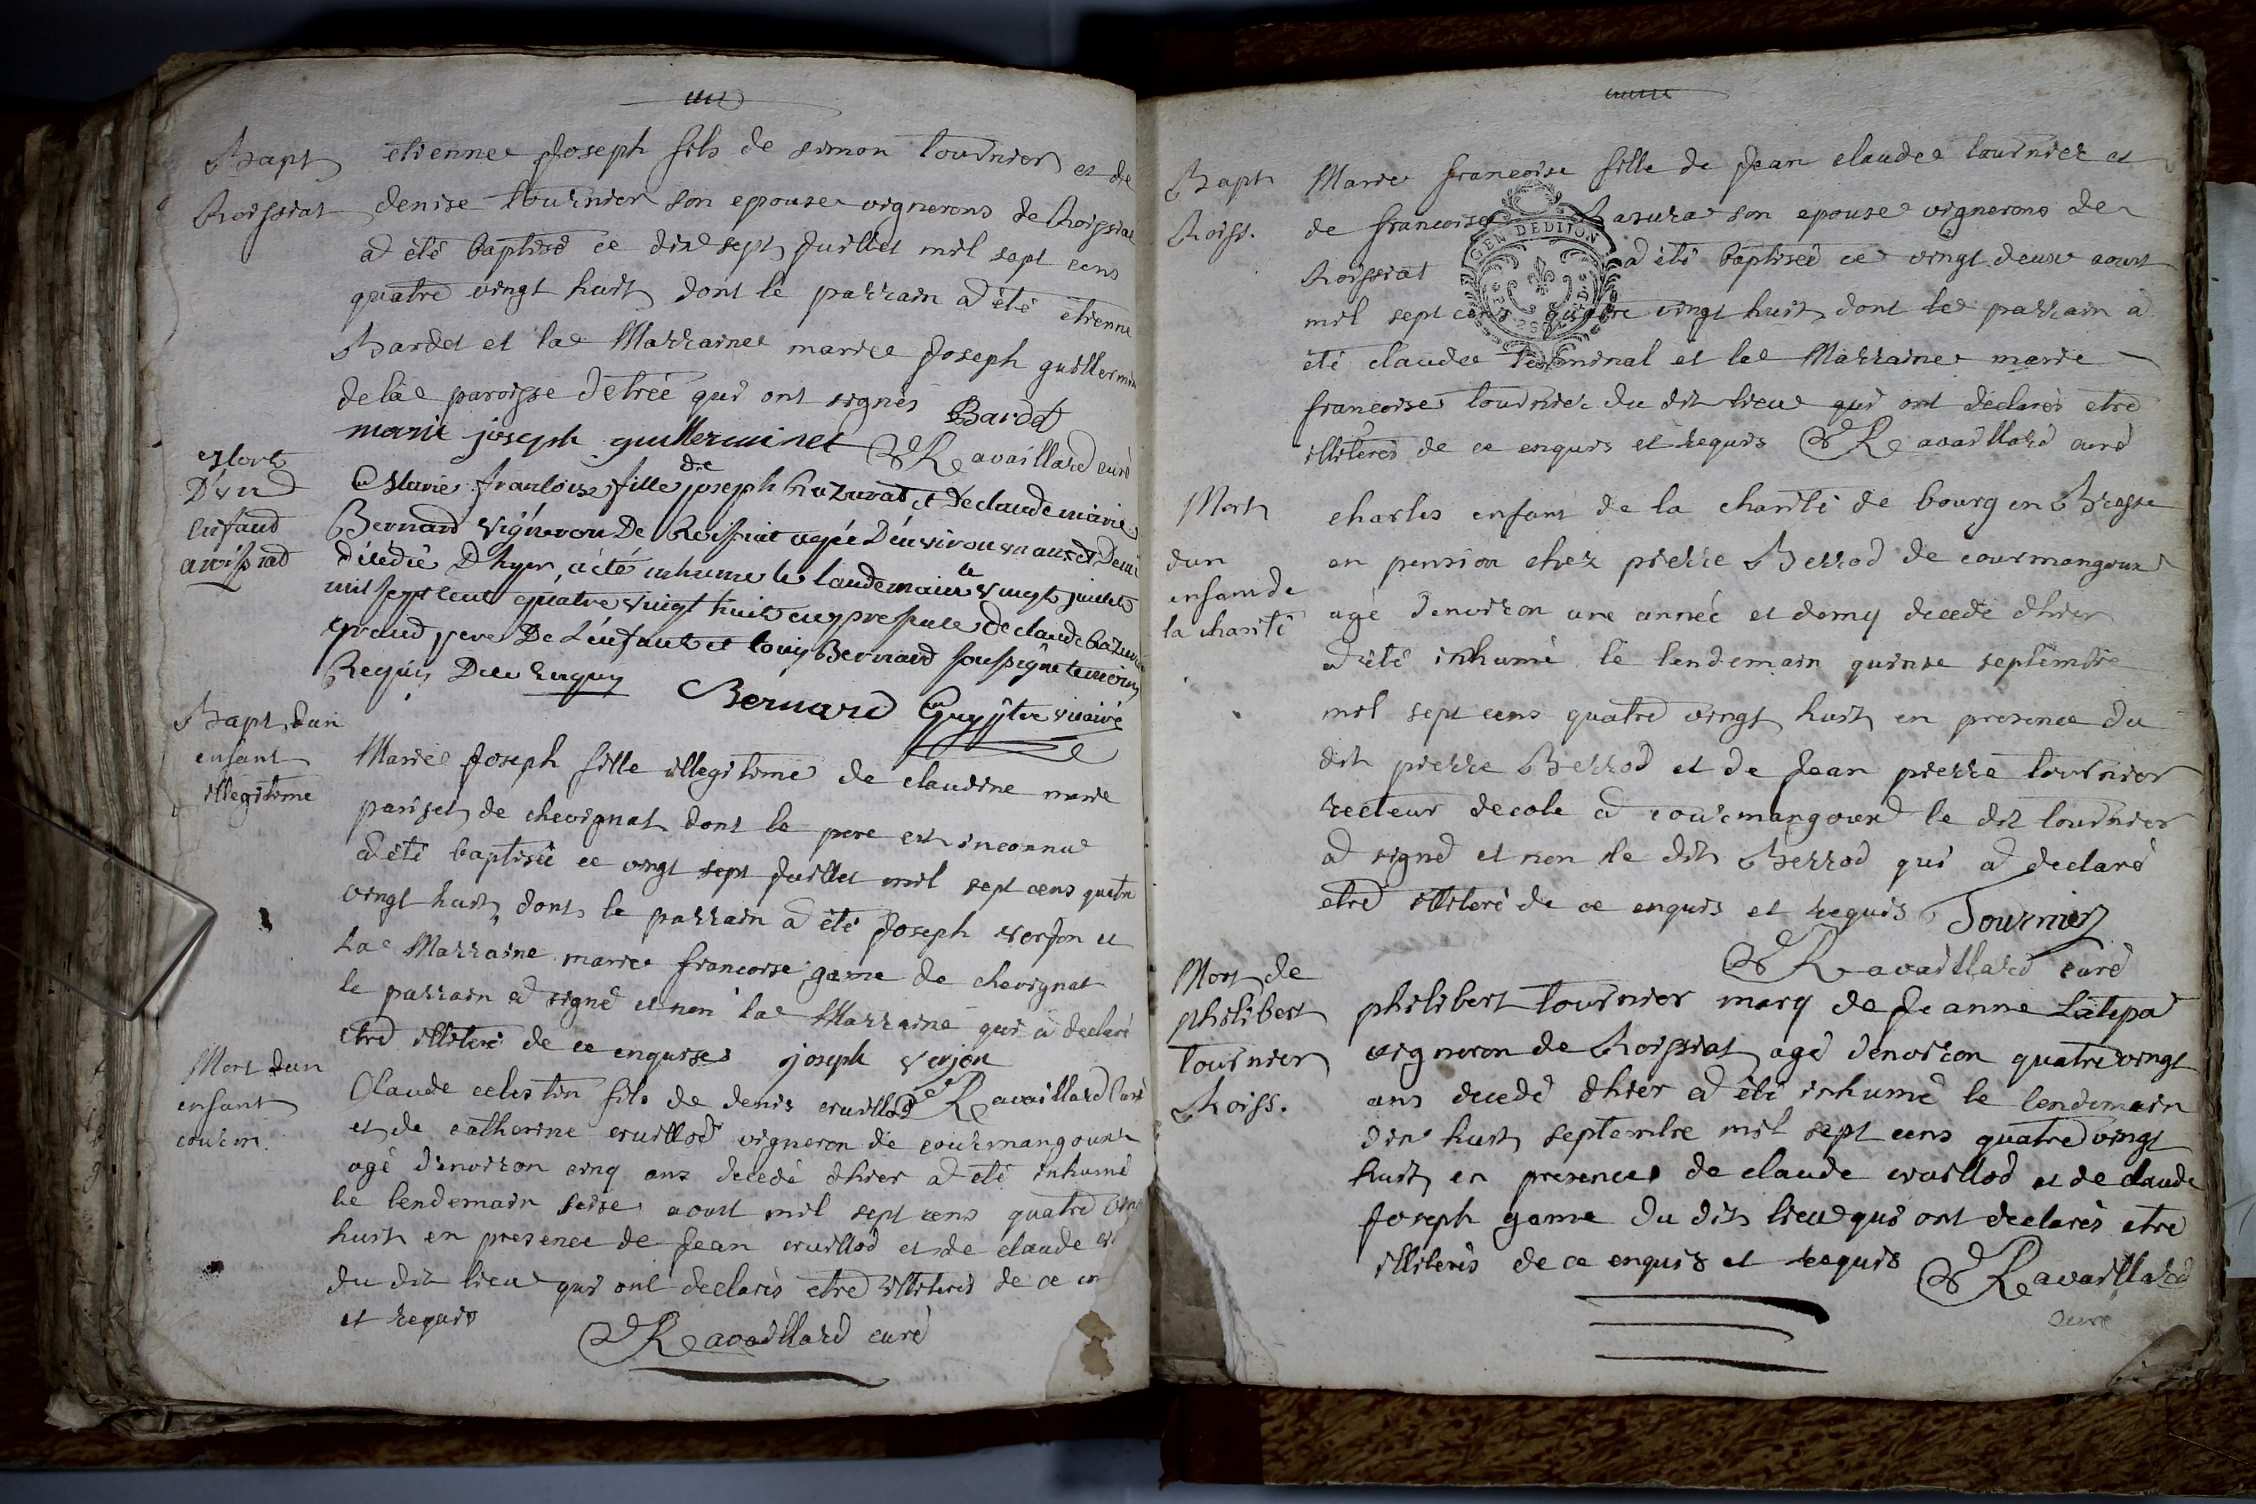 Bapt
Roissiat
etienne Joseph fils de simon tournier et de
denise tournier son epouse vignerons de Roissiat
a été baptisé ce dix sept Juillet mil sept cens
quatre vingt huit dont le parrain a été etienne
Bardet et la Marraine marie Joseph guillermin
de la paroisse detrée qui ont signés Bardet
marie joseph guillerminet Ravaillard curé
Mort
D'un
Enfand
a roissiad
Marie francoise fille de joseph Bazurat et De claude marie
Bernard vigneron De Roissiat agée D'environ un an et Demi
décédée D'hyer, a été inhume le landemain le vingt juillet
mil sept cent quatre vingt huit en presence de claude
grand pere De L'enfant et louis Bernard soussigné temoins
Requis De ce Enquis Bernard Guy ptre vicaire
Bapt, dun
enfant
illegitime
Marie Joseph fille illegitime de claudine marie
pariset de chevignat dont le pere est inconnu
a été baptisée ce vingt sept Juillet mil sept cens quatre
vingt huit, dont le parrain a été Joseph verjon et
La Marraine marie francoise game de chevignat
le parrain a signé et non la Marraine qui a declaré
etre illiteré de ce enquise joseph verjon
Ravaillard curé
Mort dun
enfant
courm.
Claude celestin fils de denis cruillod
et de catherine cruillod vigneron de courmangoux
agé d'environ cinq ans decedé dhier a été inhumé
le lendemain seise aoust mil sept cens quatre vingt
huit en presence de Jean cruillod et de claude
du dit lieu qui ont declarés etre illiterés de ce
et requis
Ravaillard curé
Bapt
Roiss.
Marie francoise fille de Jean claude tournier et
de francoise Basura son epouse vignerons de
Roissiat a été baptisée ce vingt deux aoust
mil sept cens quatre vingt huit dont le parrain a
GEN DE DIJON
été claude et la Marraine marie
francoise tournier du dit lieu qui ont déclarés etre
illiterés de ce enquis et requis Ravaillard curé
Mort
dun
enfant de
la charité
charles enfant de la charité de bourg en Bresse
en pension chez pierre Berrod de courmangoux
agé denviron une année et demy decedé dhier
a été inhumé le lendemain quinse septembre
mil sept cens quatre vingt huit en presence du
dit pierre Berrod et de Jean pierre tournier
recteur decole a courmangoux le dit tournier
a signé et non le dit Berrod qui a declaré
etre illiteré de ce enquis et requis Tournier
Ravaillard curé
Mort de
philibert
tournier
Roiss.
philibert tournier mary de Jeanne Latepa
vigneron de Roissiat agé denviron quatre vingt
ans decedé dhier a été inhumé le lendemain
dix huit septembre mil sept cens quatre vingt
huit en presence de claude cruillod et de claude
Joseph game du dit lieu qui ont declarés etre
illiterés de ce enquis et requis Ravaillard
curé